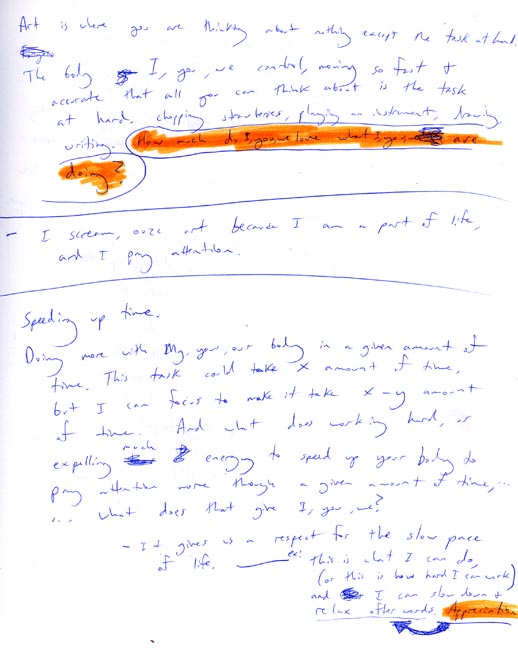 Art is where you are thinking about nothing except the task at hand.
The body I, you, we control, moving so fast &
accurate that all you can think about is the task
at hand. chopping strawberries, playing an instrument, drawing,
writing. How much do I,you,we love what I,you are
doing?
- I scream, ooze art because I am a part of life,
and I pay attention.
Speeding up time.
Doing more with My, your, our body in a given amount of
time. This task could take x amount of time,
but I can focus to make it take x-y amount
of time. And what does working hard, or
expelling much energy to speed up your body to
pay attention more though a given amount of time,...
... what does that give I, you, we?
- It gives us a respect for the slow pace
of life. ex: this is what I can do,
(or this is how hard I can work)
and I can slow down &
relax after words. Appreciation